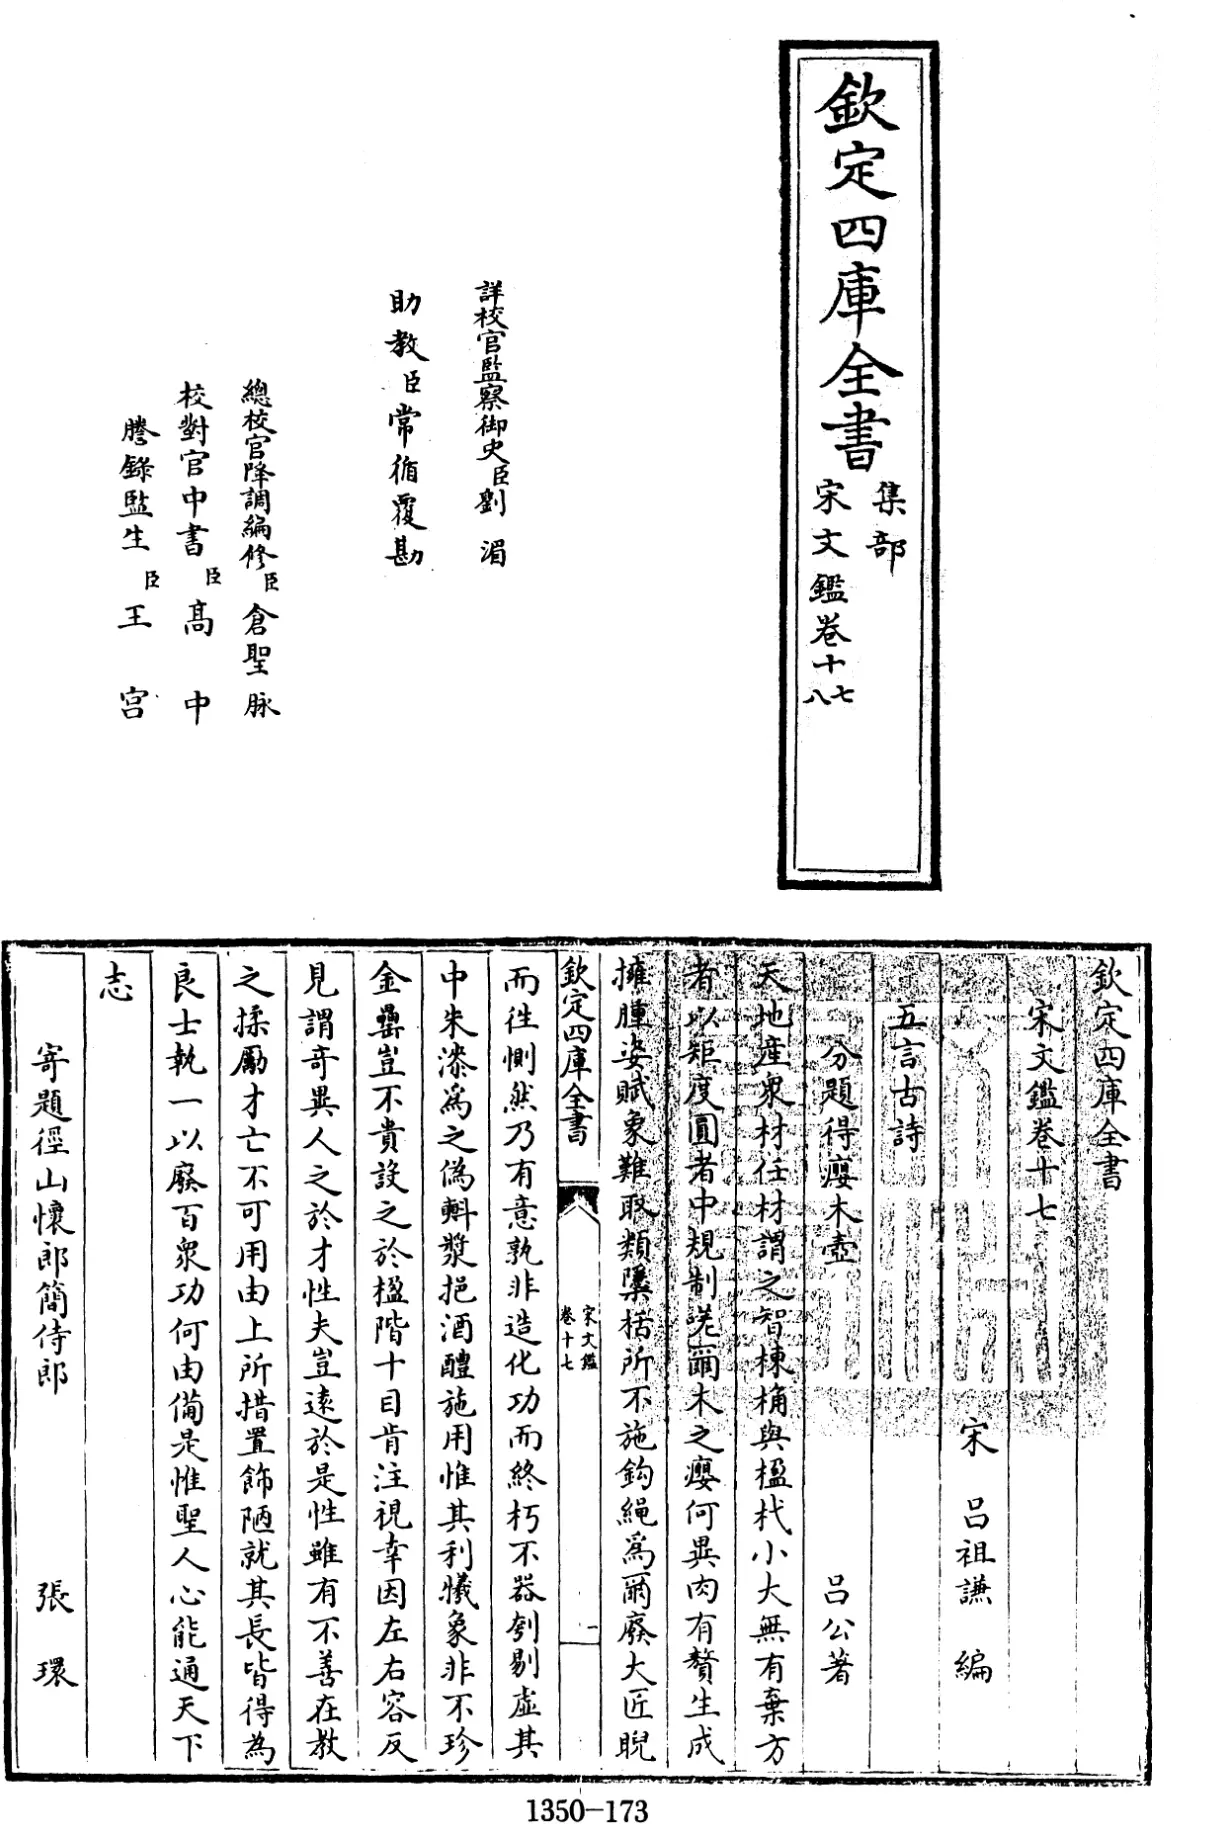 欽定四庫全書
集部
宋文鑑卷十七
八
詳校官監察御史臣劉湄
助教臣常循覆勘
總校官降調編修臣倉聖脉
校對官中書臣高中
謄錄監生臣王宫
欽定四庫全書
宋文鑑卷十七
宋 呂祖謙 編
五言古詩
分題得癭木壺 呂公著
天地產衆材任材謂之智棟桷與楹杙小大無有棄方
者以矩度圓者中規制嗟爾木之癭何異肉有贅生成
擁腫姿賦象難取類櫽栝所不施鈎繩為爾廢大匠睨
欽定四庫全書 宋文鑑卷十七 一
而徃惻然乃有意孰非造化功而終朽不器刳剔虛其
中朱漆為之偽𣂏漿挹酒醴施用惟其利犧象非不珍
金罍豈不貴設之於楹階十目肯注視幸因左右容反
見謂竒異人之於才性夫豈遠於是性雖有不善在教
之揉厲才亡不可用由上所措置飾陋就其長皆得為
良士執一以廢百衆功何由備是惟聖人心能通天下
志
寄題徑山懷郎簡侍郎 張環
1350-173